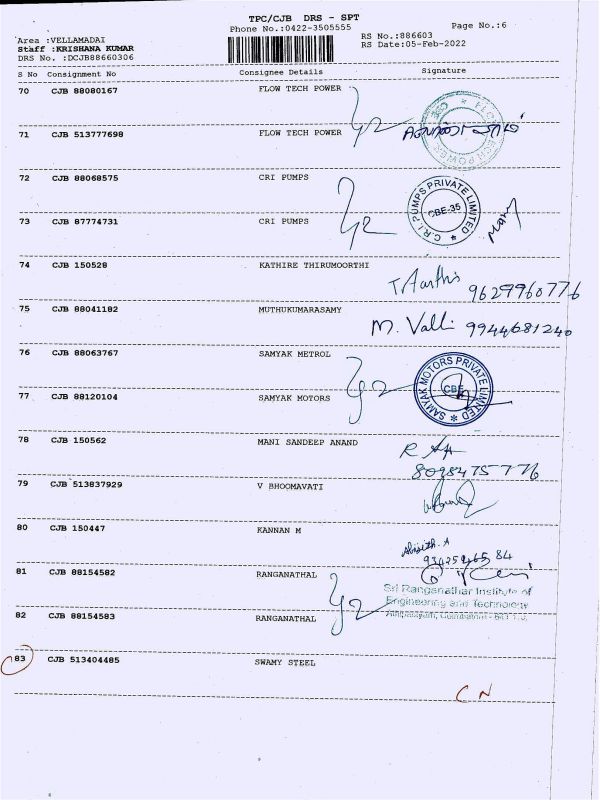 TPC/CJB DRS - SPT
Phone No.:0422-3505555
Page No.:6
Area :VELLAMADAI
Staff :KRISHANA KUMAR
DRS No. :DCJB88660306
RS No.:886603
RS Date:05-Feb-2022
S No Consignment No Consignee Details Signature
70 CJB 88080167 FLOW TECH POWER
71 CJB 513777698 FLOW TECH POWER
72 CJB 88068575 CRI PUMPS
C.R.I PUMPS PRIVATE LIMITED
CBE-35
73 CJB 87774731 CRI PUMPS
74 CJB 150528 KATHIRE THIRUMOORTHI
9629960776
75 CJB 88041182 MUTHUKUMARASAMY
M. Valli 9944681240
76 CJB 88063767 SAMYAK METROL
SAMYAK MOTORS PRIVATE LIMITED
CBE
77 CJB 88120104 SAMYAK MOTORS
78 CJB 150562 MANI SANDEEP ANAND
79 CJB 513837929 V BHOOMAVATI
80 CJB 150447 KANNAN M
81 CJB 88154582 RANGANATHAL
Sri Ranganathar Institute of
Engineering and Technology
82 CJB 88154583 RANGANATHAL
83 CJB 513404485 SWAMY STEEL
CN